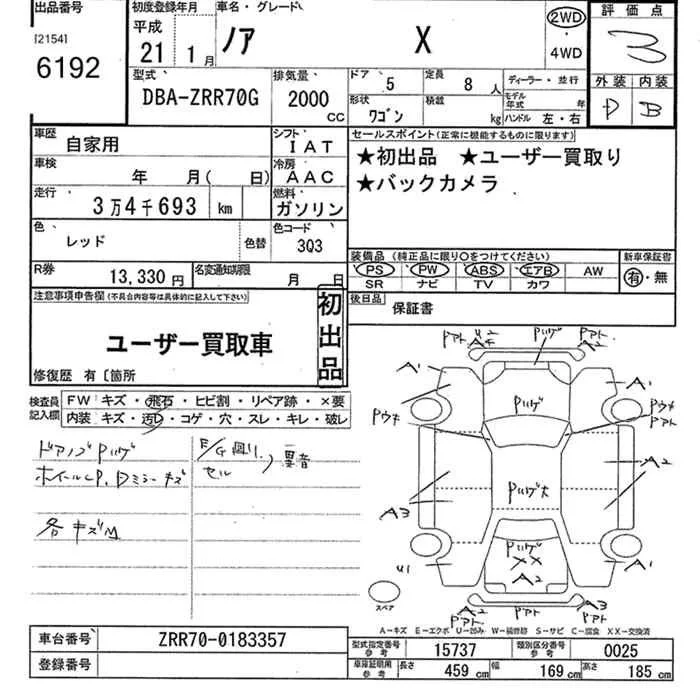 出品番号
[2154]
6192
初度登録年月
平成
21 1月
車名・グレード
ノア X
2WD
・
4WD
評価点
3
外装 内装
D B
型式
DBA-ZRR70G
排気量
2000 CC
ドア 5
定員 8 人
形状 ワゴン
積載 kg
ディーラー・並行
モデル年式 年
ハンドル 左・右
車歴 自家用
シフト IAT
車検 年 月( 日)
冷房 AAC
走行 3万4千693 km
燃料 ガソリン
色 レッド 色替
色コード 303
R券 13,330円
名変通知期限 月 日
セールスポイント(正常に機能するものに限ります)
★初出品 ★ユーザー買取り
★バックカメラ
装備品(純正品に限り○をつけてください)
PS PW ABS エアB AW
SR ナビ TV カワ
新車保証書
有・無
後日品 保証書
注意事項申告欄(不具合内容等は具体的に記入して下さい)
ユーザー買取車
初出品
修復歴 有〔箇所
検査員記入欄
FW キズ・飛石・ヒビ割・リペア跡・×要
内装 キズ・汚レ・コゲ・穴・スレ・キレ・破レ
ドアノブPハゲ
各キズM
E/G回り、
異音
Pハゲ
Pハゲ
A1
A1
A2
A3
Pハゲ大
Pハゲ
XX
A2
U1
A2
A3
スペア
A-キズ E-エクボ U-凹み W-補修跡 S-サビ C-腐食 XX-交換済
車台番号 ZRR70-0183357
登録番号
型式指定番号参考 15737
類別区分番号参考 0025
車庫証明用参考
長さ 459 cm
幅 169 cm
高さ 185 cm